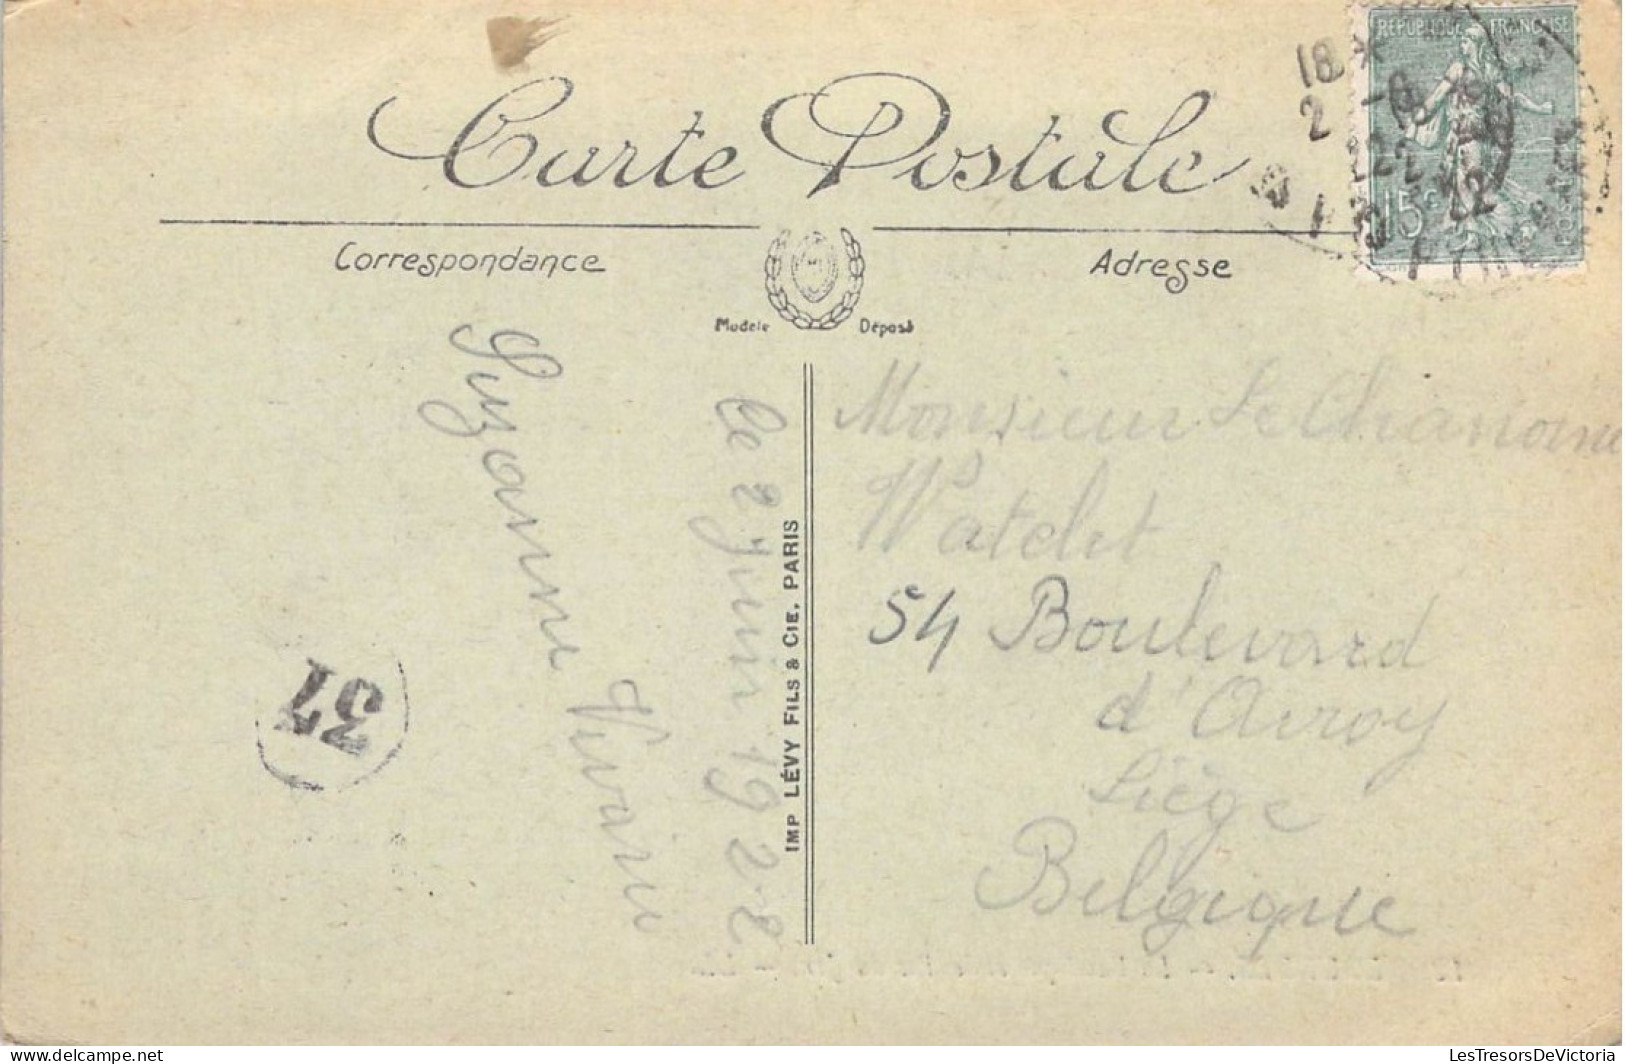 Carte Postale
RÉPUBLIQUE FRANÇAISE
15c
18
2 -6
22
Correspondance
Adresse
Modèle Déposé
le 2 Juin 1922
Suzanne
IMP LÉVY FILS & CIE, PARIS
37
Monsieur Le Chanoine
Watelet
54 Boulevard
d'Avroy
Liège
Belgique
LesTresorsDeVictoria